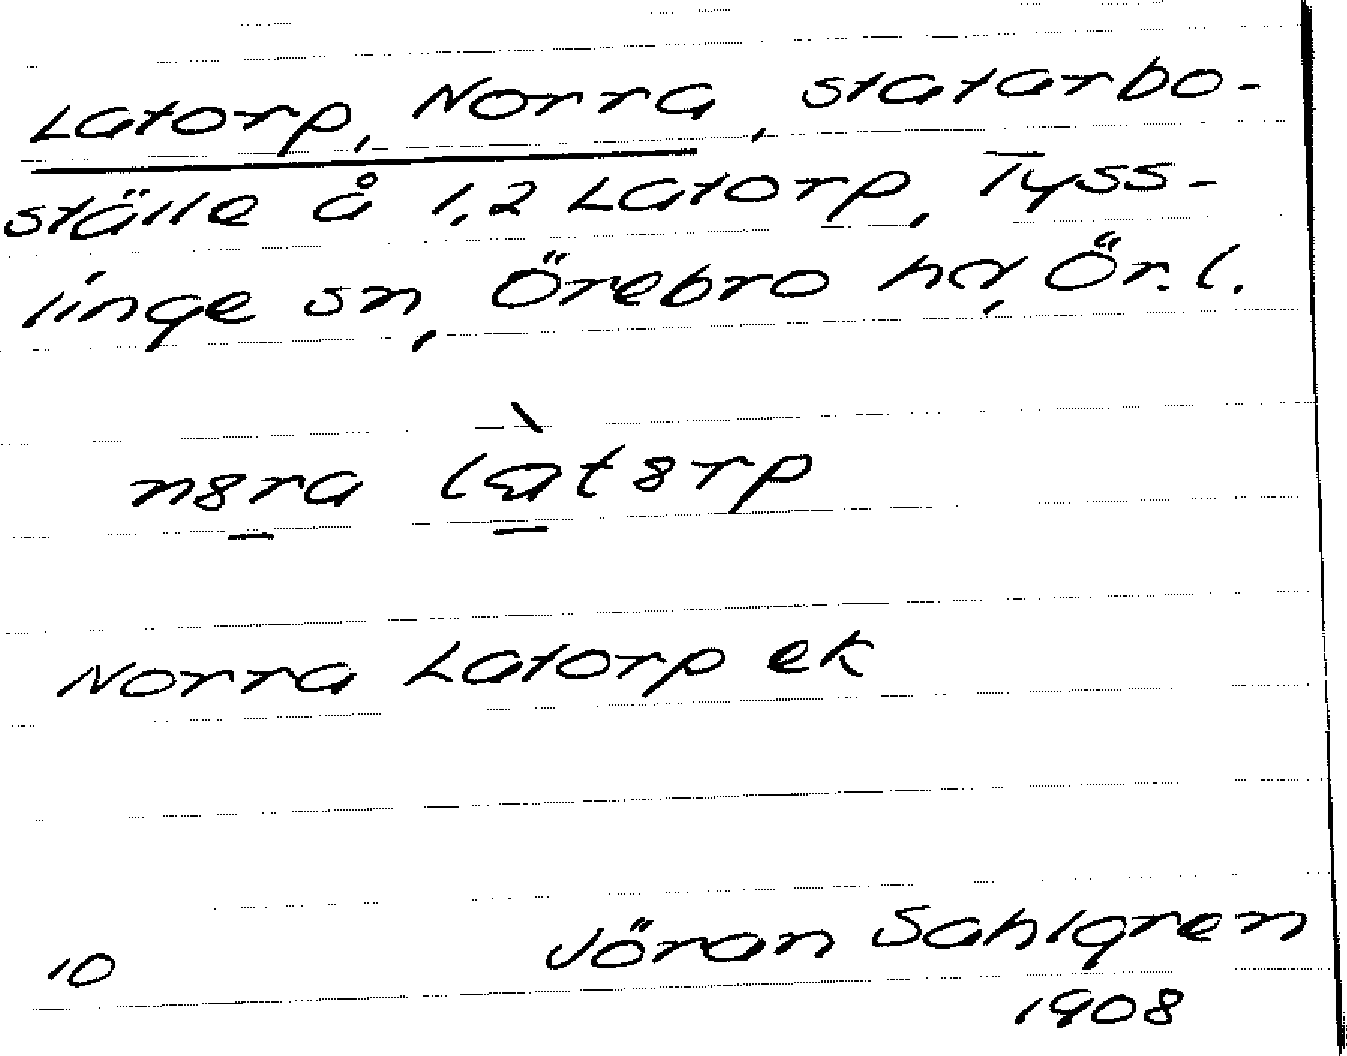 Latorp, Norra, statarbo-
ställe å 1,2 Latorp, Tyss-
linge sn, Örebro hd, Ör. l.
n8ra làt8rp
Norra Latorp ek
10 Jöran Sahlgren
1908